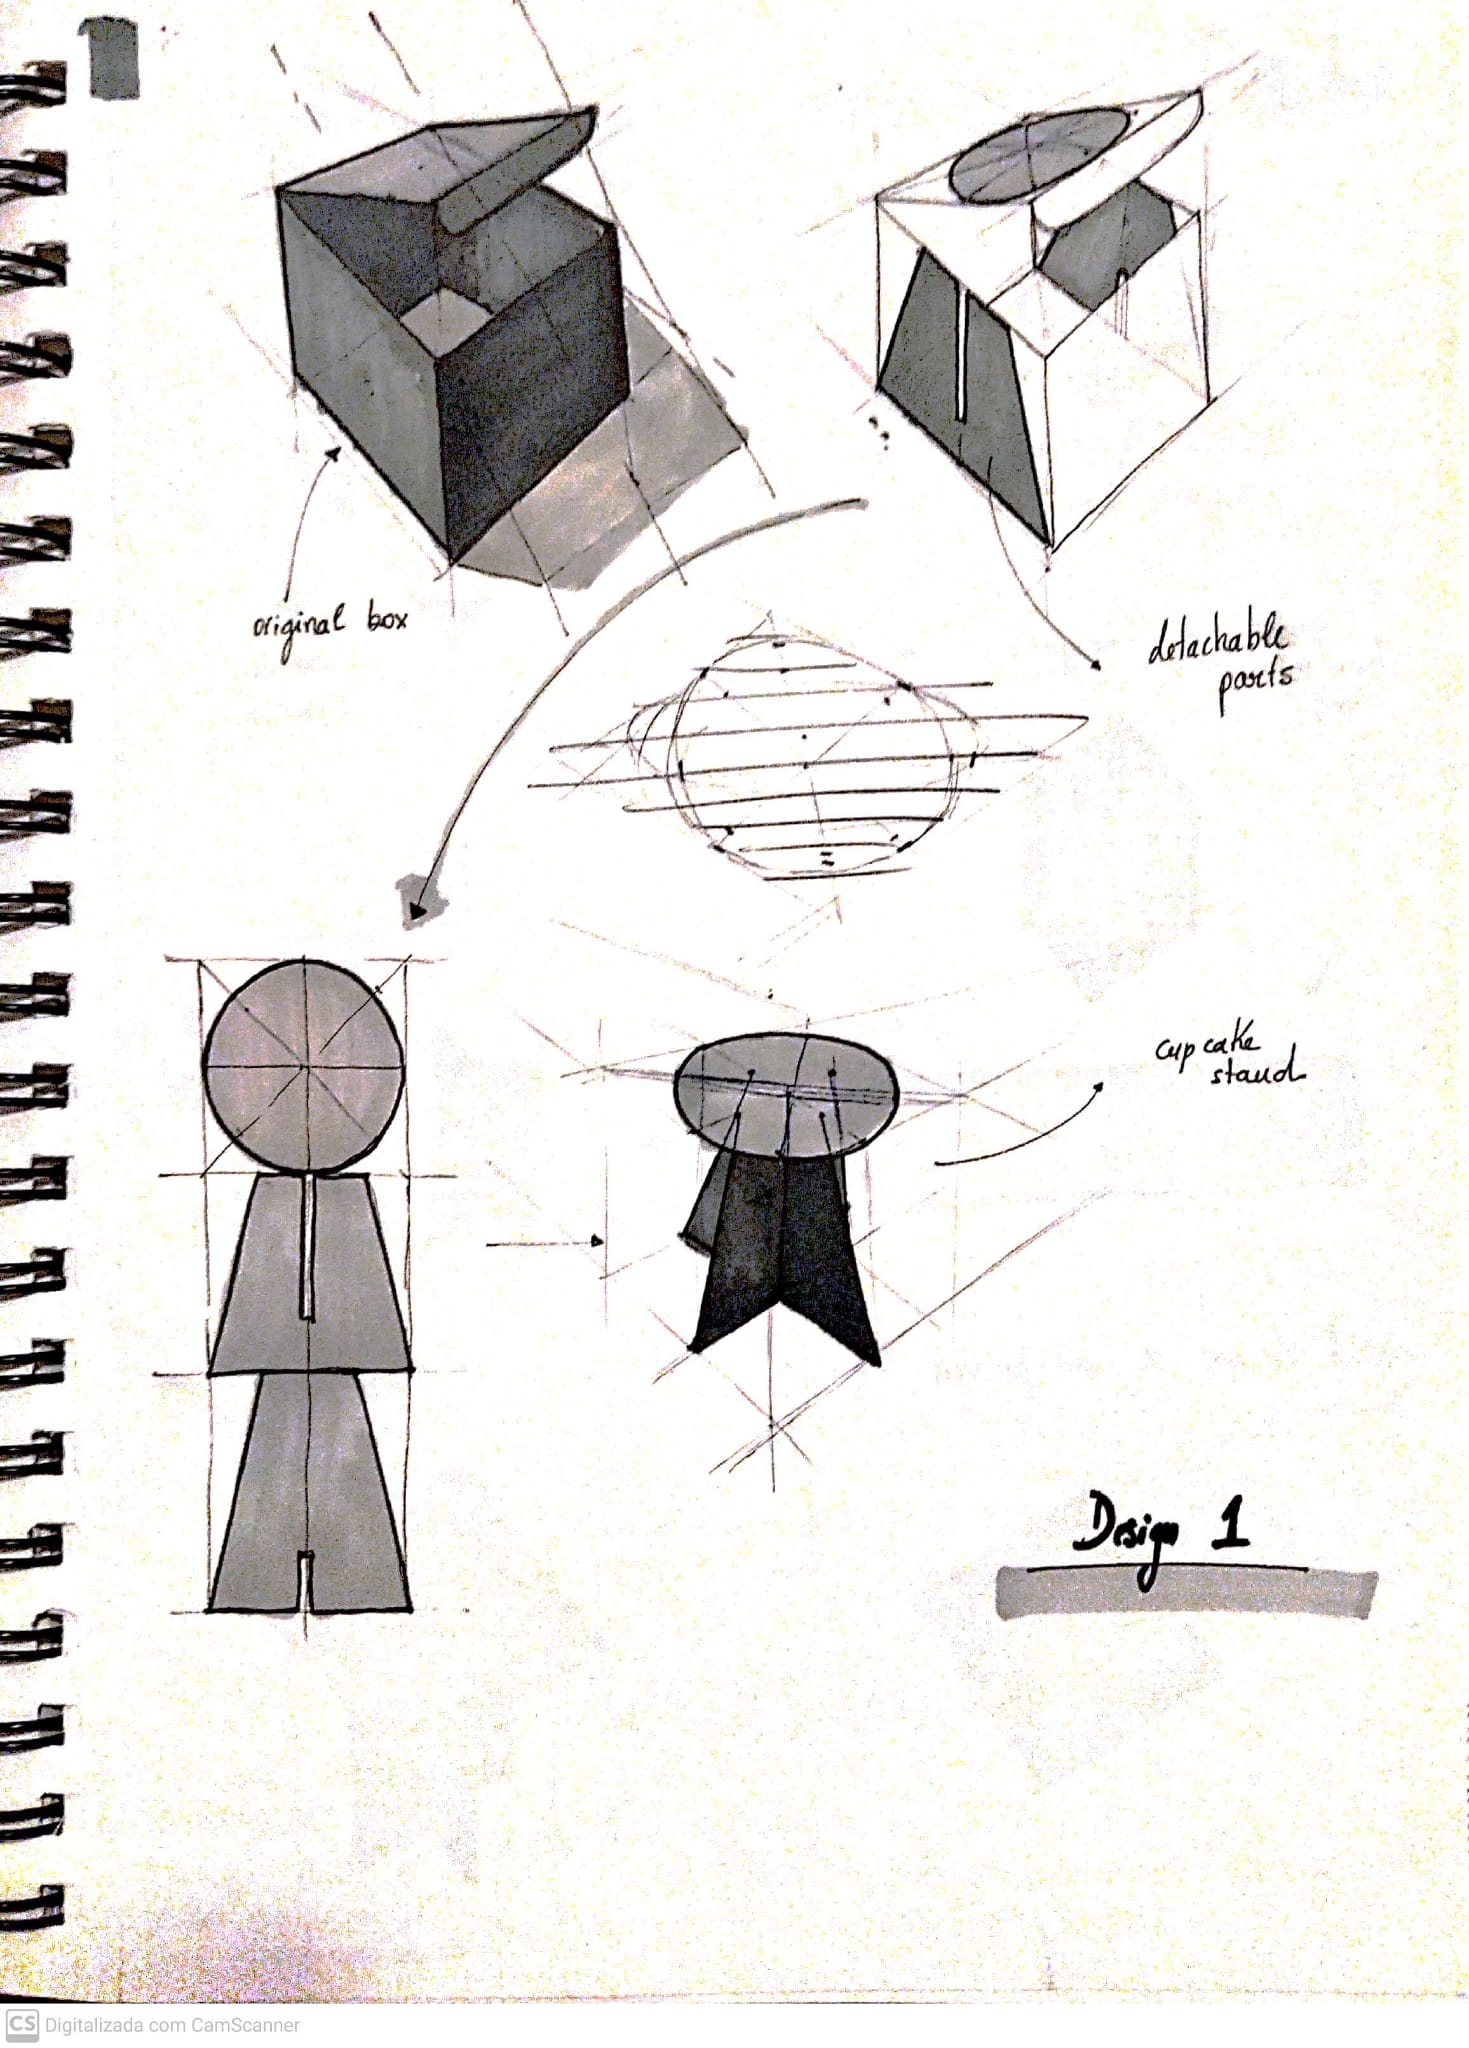 original box
detachable
parts
cupcake
stand
Design 1
CS Digitalizada com CamScanner